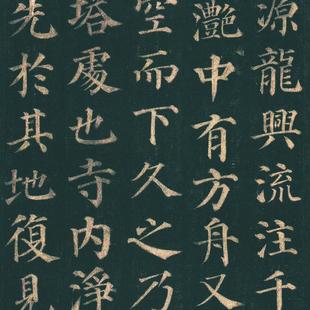 源龍興流注千
灩中有方舟又
空而下久之乃
塔處也寺内淨
先於其地復見